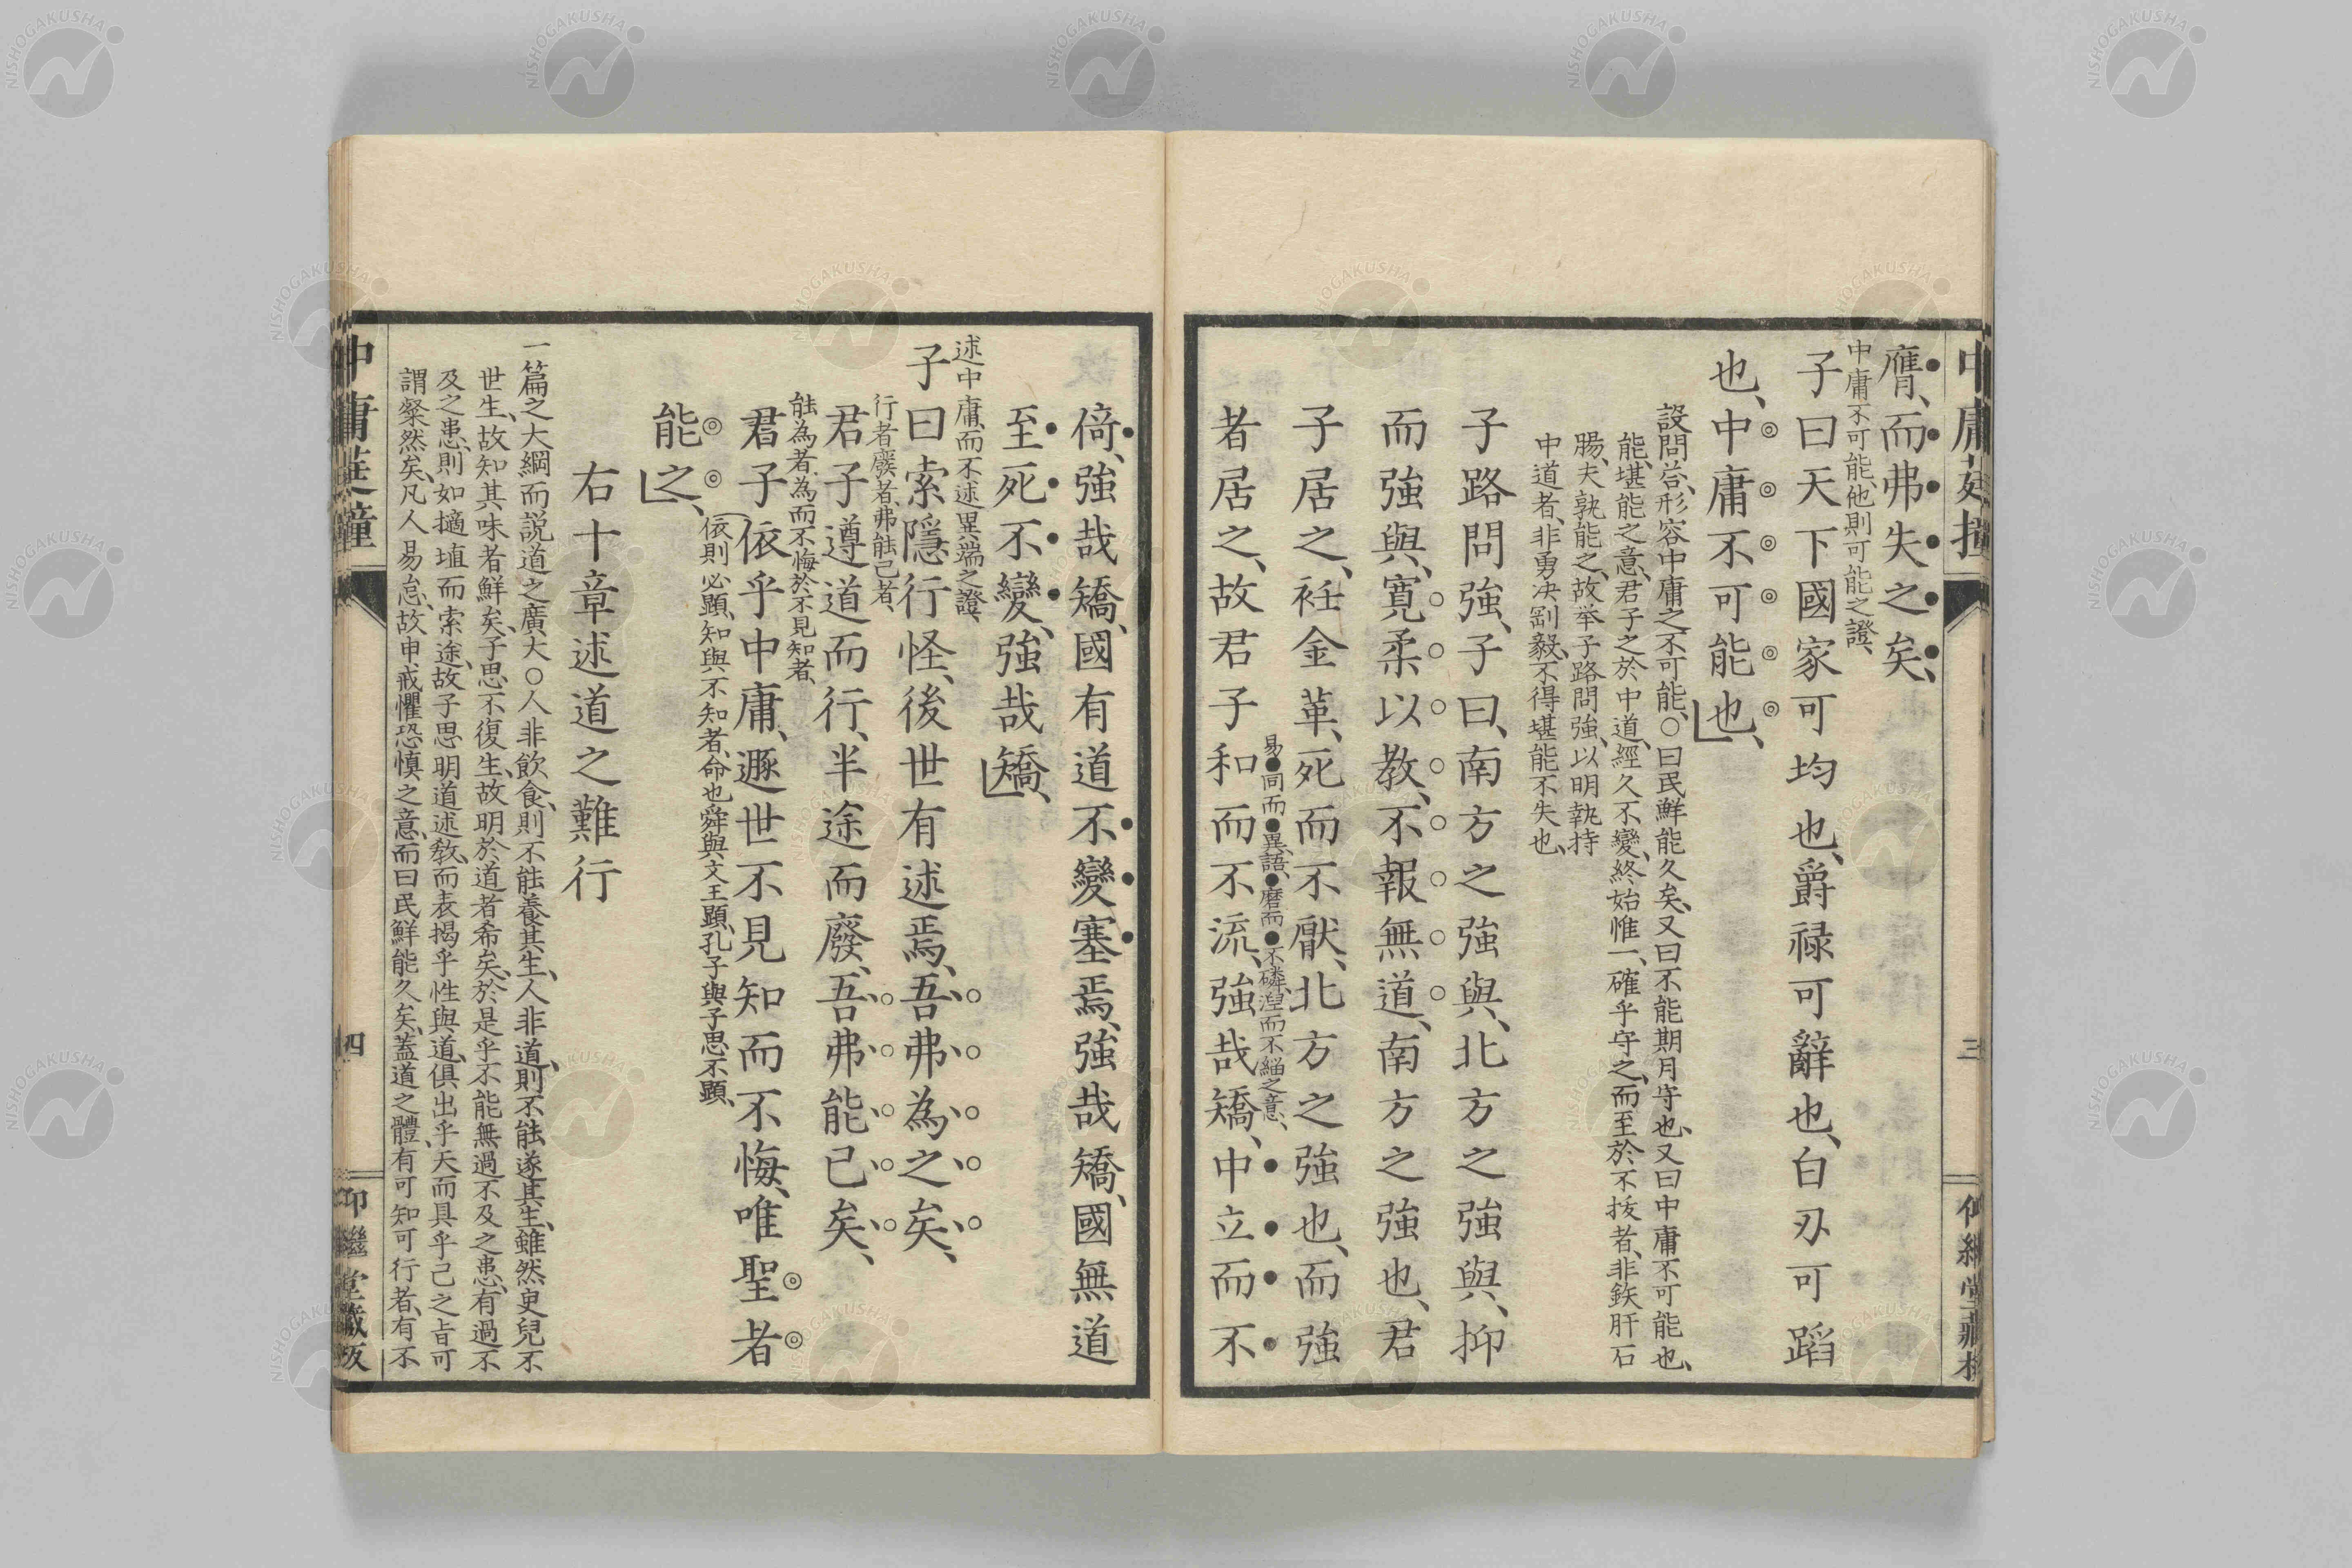 膺、而弗失之矣、
中庸不可能、他則可能之證、
子曰天下國家可均也、爵祿可辭也、白刃可蹈
也、中庸不可能也、
設問答、形容中庸之不可能、○曰民鮮能久矣、又曰不能期月守也、又曰中庸不可能也、
能、堪能之意、君子之於中道、經久不變、終始惟一、確乎守之、而至於不拔者、非鉄肝石
腸、夫孰能之、故举子路問強、以明執持
中道者、非勇决剛毅、不得堪能不失也、
子路問強、子曰、南方之強與、北方之強與、抑
而強與、寛柔以教、不報無道、南方之強也、君
子居之、衽金革、死而不厭、北方之強也、而強
易●同而●異、語●磨而●不磷、涅而不緇之意、
者居之、故君子和而不流、強哉矯、中立而不
倚、強哉矯、國有道不變塞焉、強哉矯、國無道
至死不變、強哉矯、
述中庸、而不述異端之證、
子曰索隱行怪、後世有述焉、吾弗為之矣、
行者廢者、弗能已者、
君子遵道而行、半途而廢、吾弗能已矣、
能為者、為而不悔於不見知者、
君子依乎中庸、遯世不見知而不悔、唯聖者
依則必顯、知與不知者、命也舜與文王顯、孔子與子思不顯、
能之、
右十章述道之難行
一篇之大綱而説道之廣大○人非飲食、則不能養其生、人非道、則不能遂其生、雖然史兒不
世生、故知其味者鮮矣、子思不復生、故明於道者希矣、於是乎不能無過不及之患、有過不
及之患、則如擿埴而索途、故子思明道述教、而表揭乎性與道、俱出乎天而具乎己之旨可
謂粲然矣、凡人易怠、故申戒懼恐慎之意、而曰民鮮能久矣、蓋道之體、有可知可行者、有不
四